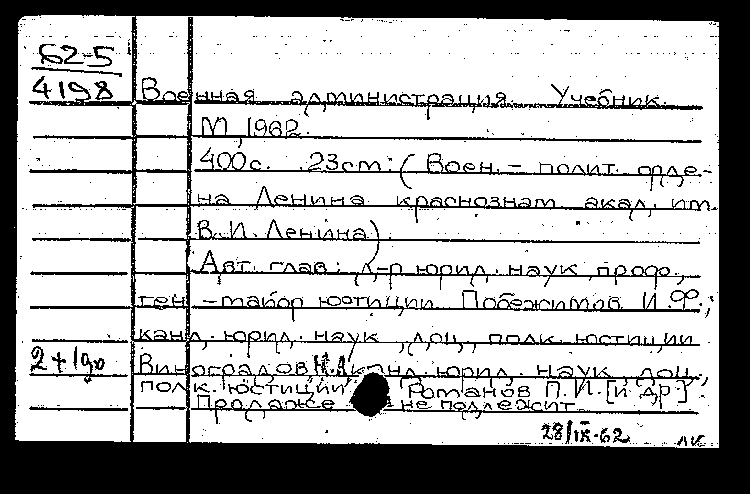 62-5
4198 Военная администрация. Учебник.
М, 1962.
400с. 23см. (Воен.-полит. орде-
на Ленина краснознам акад. им.
В. И. Ленина)
Авт. глав: д-р юрид. наук, проф.,
ген.-майор юстиции Победжимов И. Ф.;
канд. юрид. наук, доц., полк. юстиции
2+1др Виноградов Н.А, канд. юрид. наук доц.,
полк. юстиции Романов П. И. [и др].
Продаже не подлежит
28/IX-62
ЛК